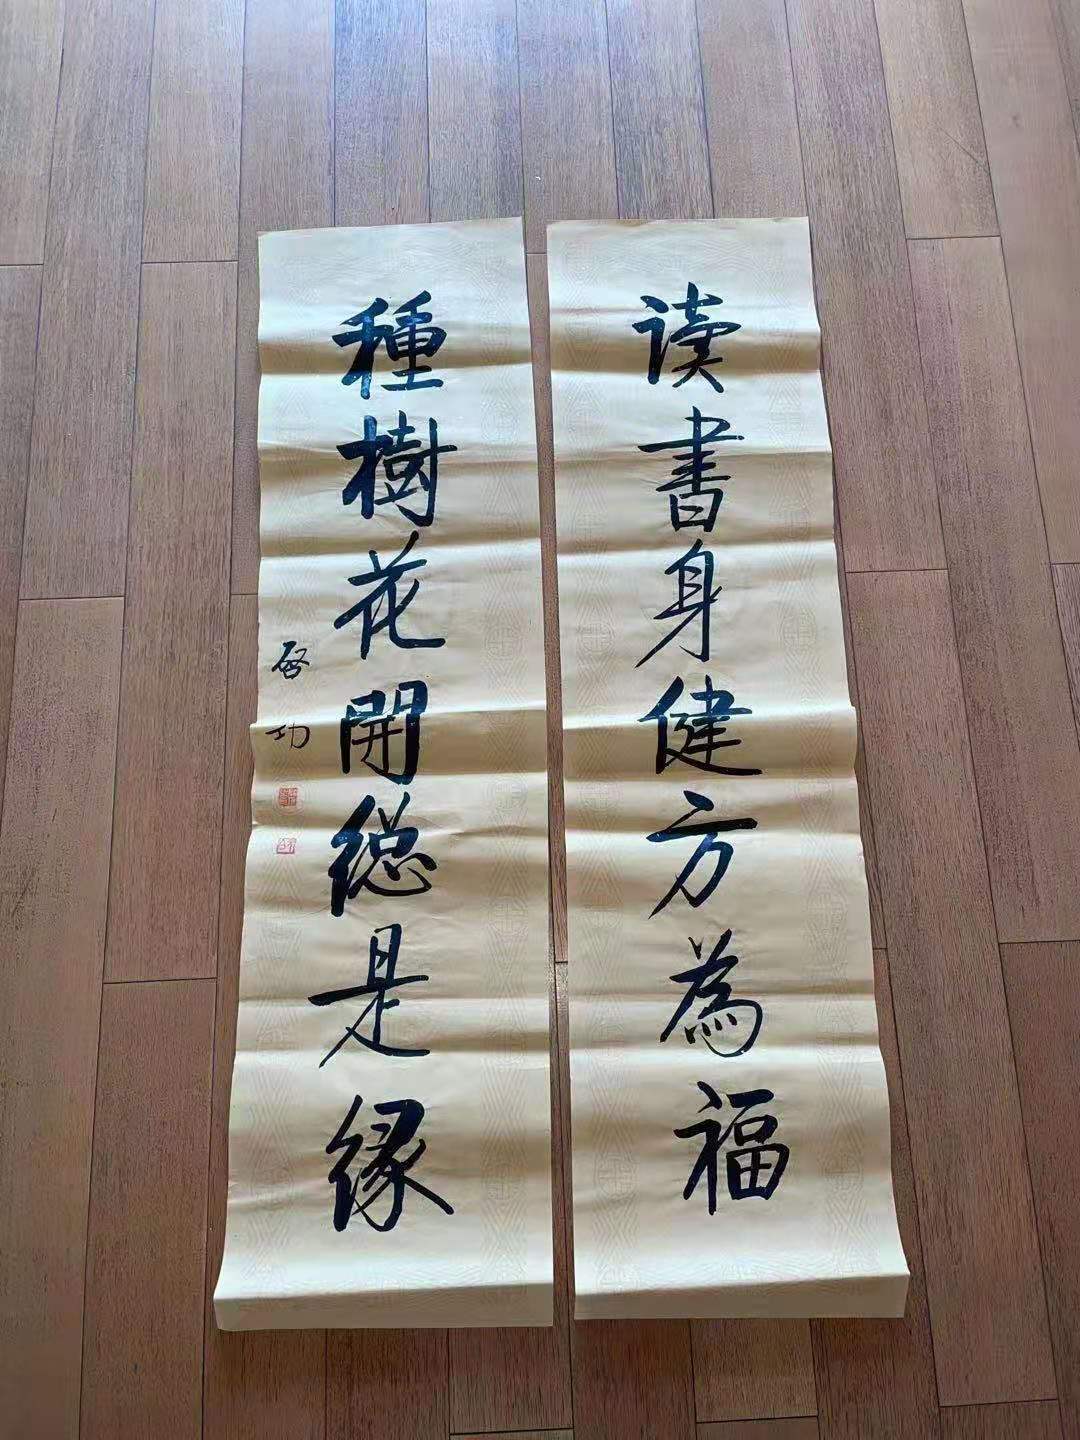 读书身健方為福
種樹花開総是缘
啓功